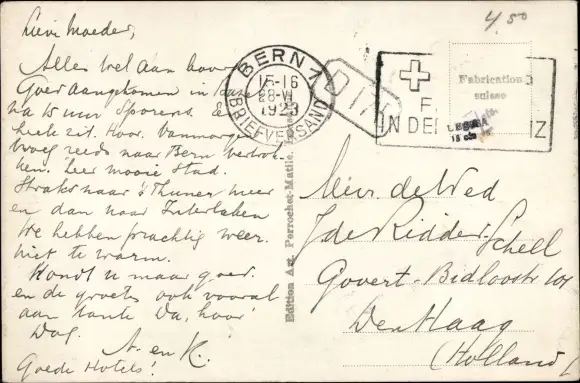 4,50
Lieve Moeder,
Alles wel aan boord
Goed aangekomen in
na 15 uur sporens. Een
heele zit. Hoor. Vanmorgen
vroeg reeds naar Bern vertrok-
ken. Zeer mooie stad.
Straks naar 't Thuner meer
en dan naar Interlaken
We hebben prachtig weer.
niet te warm.
Houdt u maar goed
en de groeten ook vooral
aan tante Da, hoor
Dag.
A. en K.
Goede Hotels!
BERN 1
15-16
28.VI
1923
BRIEFVERSAND
Fabrication
suisse
IN DE IZ
Edition Art. Perrochet-Matile,
Mevr. de Wed
J de Ridder-Schell
Govert-Bidloostr 101
Den Haag
(Holland)